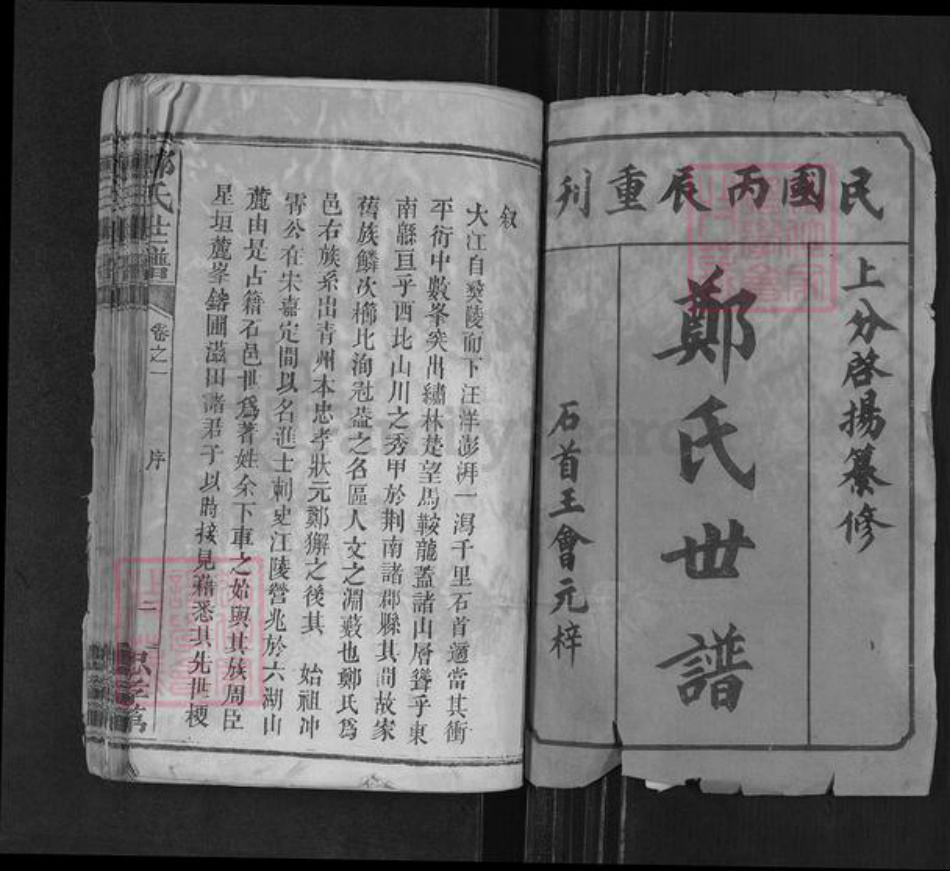 民國丙辰重刋
上分啓揚纂修
鄭氏世譜
石首王會元梓
敘
大江自𡗝陵而下汪洋澎湃一瀉千里石首適當其衝
平衍中數峯突出繡林楚望馬鞍龍蓋諸山層聳乎東
南緜亘乎西北山川之秀甲於荆南諸郡縣其間故家
舊族鱗次櫛比洵冠葢之名區人文之淵藪也鄭氏爲
邑右族系出青州本忠孝狀元鄭獬之後其 始祖冲
霄公在宋嘉定間以名進士刺史江陵營兆於六湖山
麓由是占籍石邑世爲著姓余下車之始與其族周臣
星垣麓峯錦圃滋田諸君子以時接見藉悉其先世梗
氏世譜
卷之一
序
二